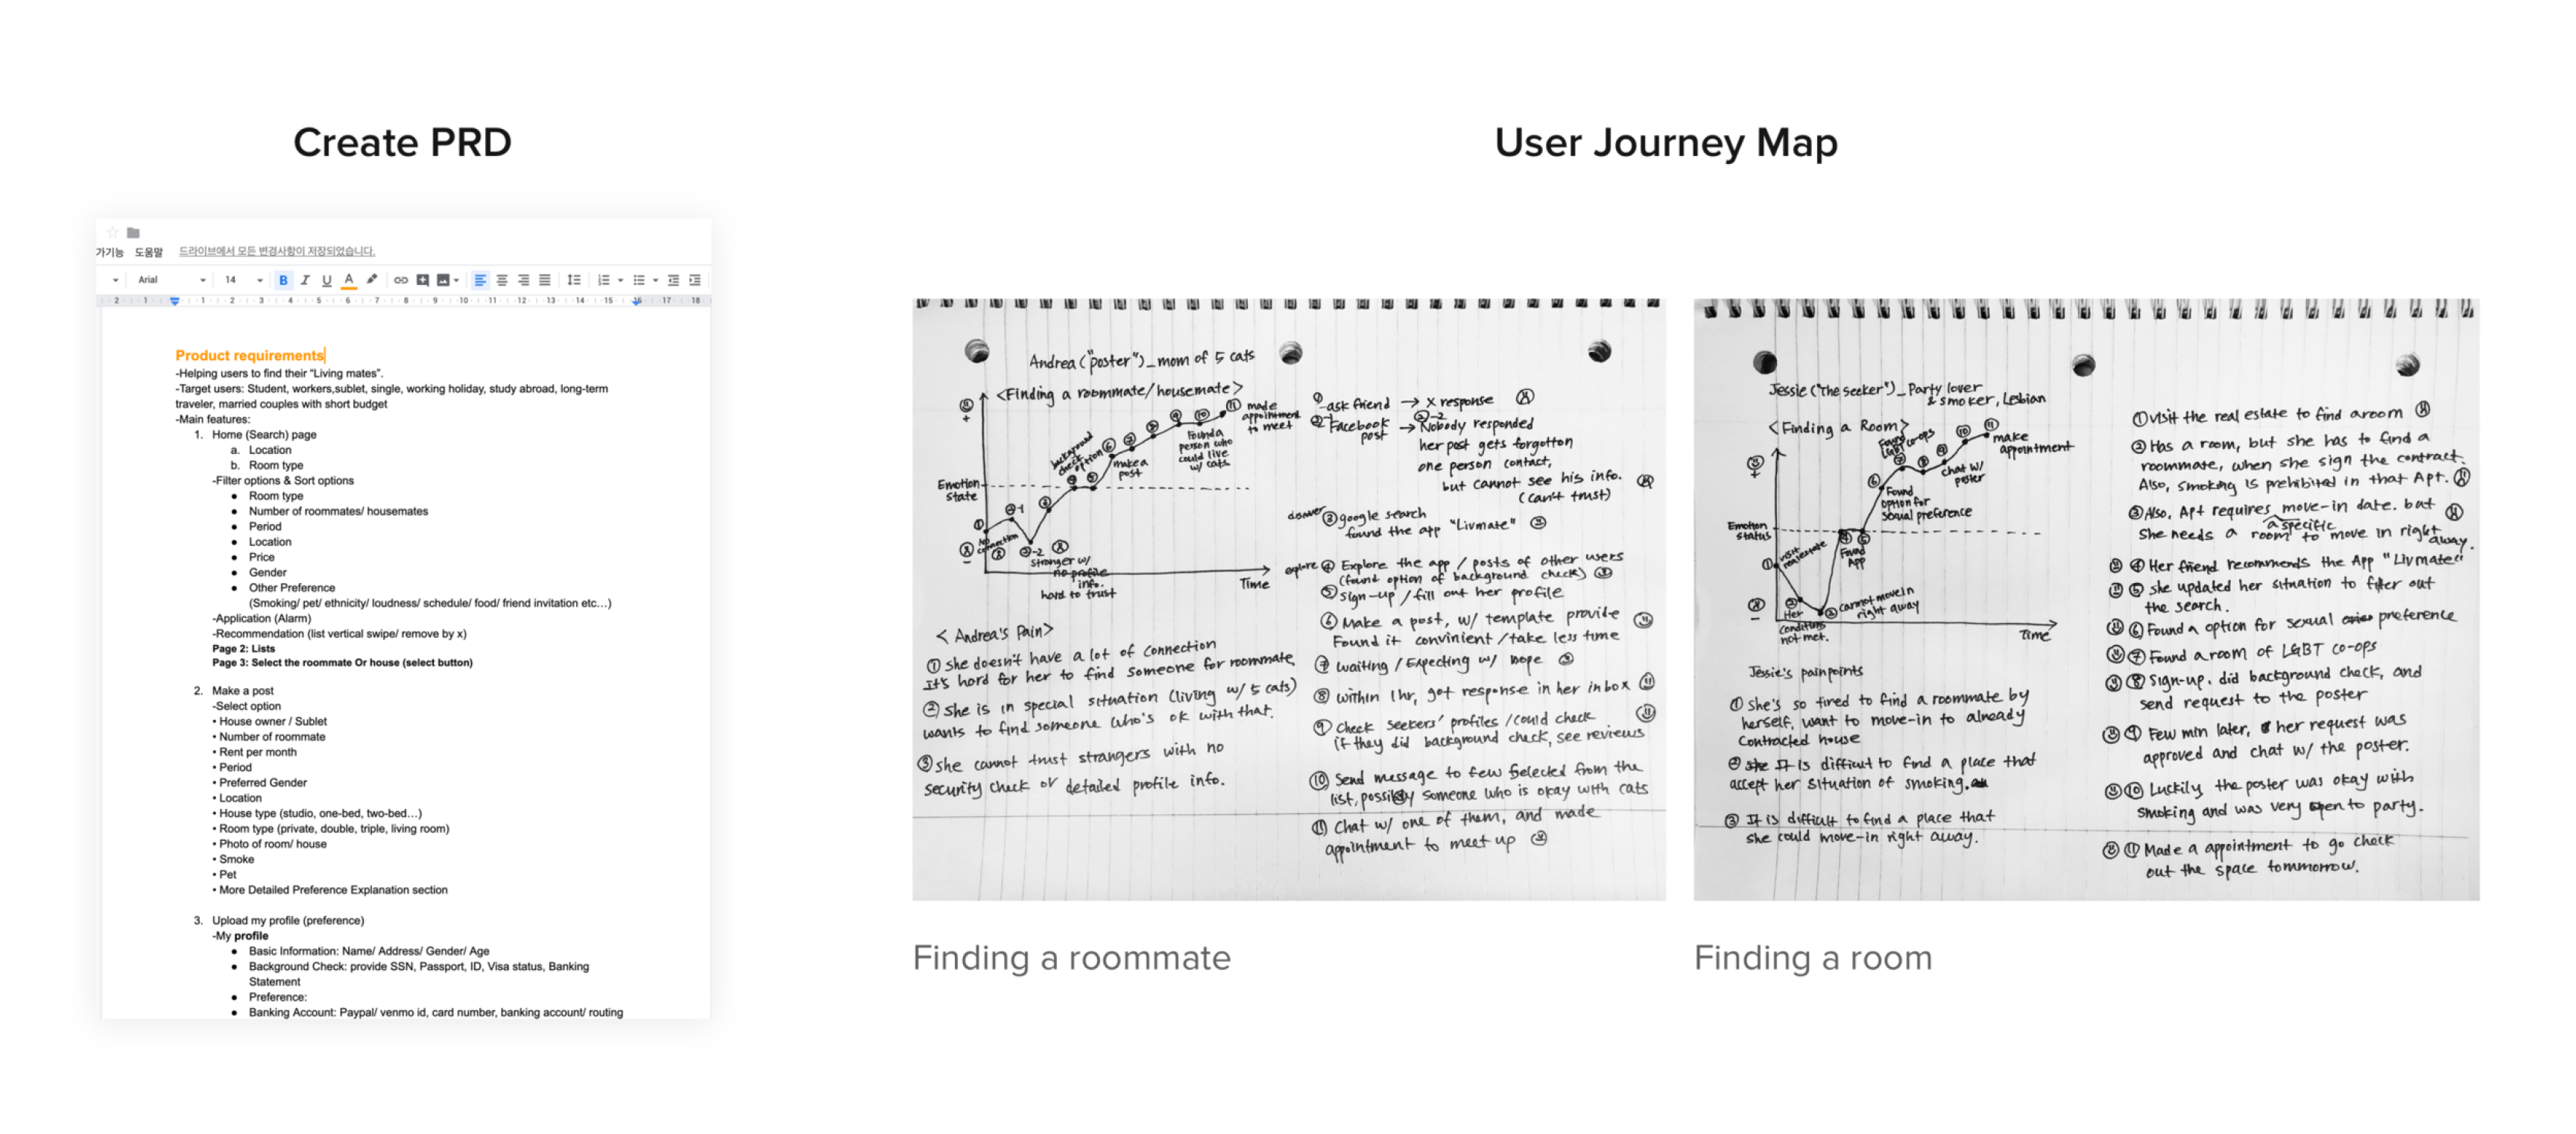 Create PRD
가기능 도움말 드라이브에서 모든 변경사항이 저장되었습니다.
Arial 14 B I U A
2 1 1 2 3 4 5 6 7 8 9 10 11 12 13 14 15 16 17 18
Product requirements
-Helping users to find their “Living mates”.
-Target users: Student, workers,sublet, single, working holiday, study abroad, long-term
traveler, married couples with short budget
-Main features:
1. Home (Search) page
a. Location
b. Room type
-Filter options & Sort options
● Room type
● Number of roommates/ housemates
● Period
● Location
● Price
● Gender
● Other Preference
(Smoking/ pet/ ethnicity/ loudness/ schedule/ food/ friend invitation etc...)
-Application (Alarm)
-Recommendation (list vertical swipe/ remove by x)
Page 2: Lists
Page 3: Select the roommate Or house (select button)
2. Make a post
-Select option
• House owner / Sublet
• Number of roommate
• Rent per month
• Period
• Preferred Gender
• Location
• House type (studio, one-bed, two-bed...)
• Room type (private, double, triple, living room)
• Photo of room/ house
• Smoke
• Pet
• More Detailed Preference Explanation section
3. Upload my profile (preference)
-My profile
● Basic Information: Name/ Address/ Gender/ Age
● Background Check: provide SSN, Passport, ID, Visa status, Banking
Statement
● Preference:
● Banking Account: Paypal/ venmo id, card number, banking account/ routing
User Journey Map
Andrea ("poster")_mom of 5 cats
<Finding a roommate/housemate>
+
Emotion
state
-
Time
① No connection
②-1
②-2
Stranger w/
no profile
info.
hard to trust
③
④ ⑤
background
check
option
⑥ ⑦
make a
post
⑧
⑨ ⑩
Found a
person who
could live
w/ cats
⑪ made
appointment
to meet
<Andrea's Pain>
① she doesn't have a lot of connection
It's hard for her to find someone for roommate.
② she is in special situation (living w/ 5 cats)
wants to find someone who's ok with that.
③ she cannot trust strangers with no
security check or detailed profile info.
① ask friend → x response
②-1 Facebook post → ②-2 Nobody responded
her post gets forgotton
one person contact,
but cannot see his info.
(can't trust)
③ google search
found the app "Livmate"
explore ④ Explore the app / posts of other users
(found option of background check)
⑤ sign-up / fill out her profile
⑥ Make a post, w/ template provide
Found it convinient /take less time
⑦ waiting / Expecting w/ hope
⑧ within 1hr, got response in her inbox
⑨ Check seekers' profiles /could check
if they did background check, see reviews
⑩ Send message to few selected from the
list, possibly someone who is okay with cats
⑪ Chat w/ one of them, and made
appointment to meet up
Finding a roommate
Jessie ("The seeker")_Party lover
& smoker, Lesbian
<Finding a Room>
+
Emotion
status
-
Time
① visit real estate
② Her
conditions
not met.
③ cannot move in
right away
④ ⑤
Found
APP
⑥ Found
option for
sexual preference
⑦
⑧ ⑨
chat w/
poster
⑩ ⑪
make
appointment
Jessie's painpoints
① she's so tired to find a roommate by
herself, want to move-in to already
contracted house
② she It is difficult to find a place that
accept her situation of smoking.
③ It is difficult to find a place that
she could move-in right away.
① visit the real estate to find a room
② Has a room, but she has to find a
roommate, when she sign the contract.
Also, smoking is prehibited in that Apt.
③ Also, Apt requires a specific move-in date. but
she needs a room to move in right away.
④ Her friend recommends the App "Livmate"
⑤ she updated her situation to filter out
the search.
⑥ Found a option for sexual preference
⑦ Found a room of LGBT co-ops
⑧ Sign-up. did background check, and
send request to the poster
⑨ Few min later, her request was
approved and chat w/ the poster.
⑩ Luckily the poster was okay with
smoking and was very open to party.
⑪ Made a appointment to go check
out the space tommorrow.
Finding a room